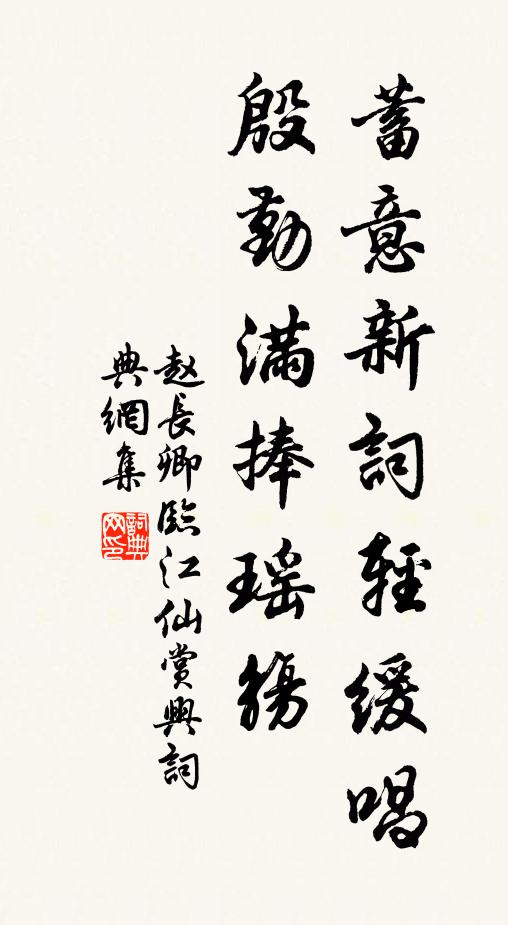 蓄意新詞輕緩唱
殷勤滿捧瑤觴
赵長卿臨江仙賞興詞
典網集
詞典
网印